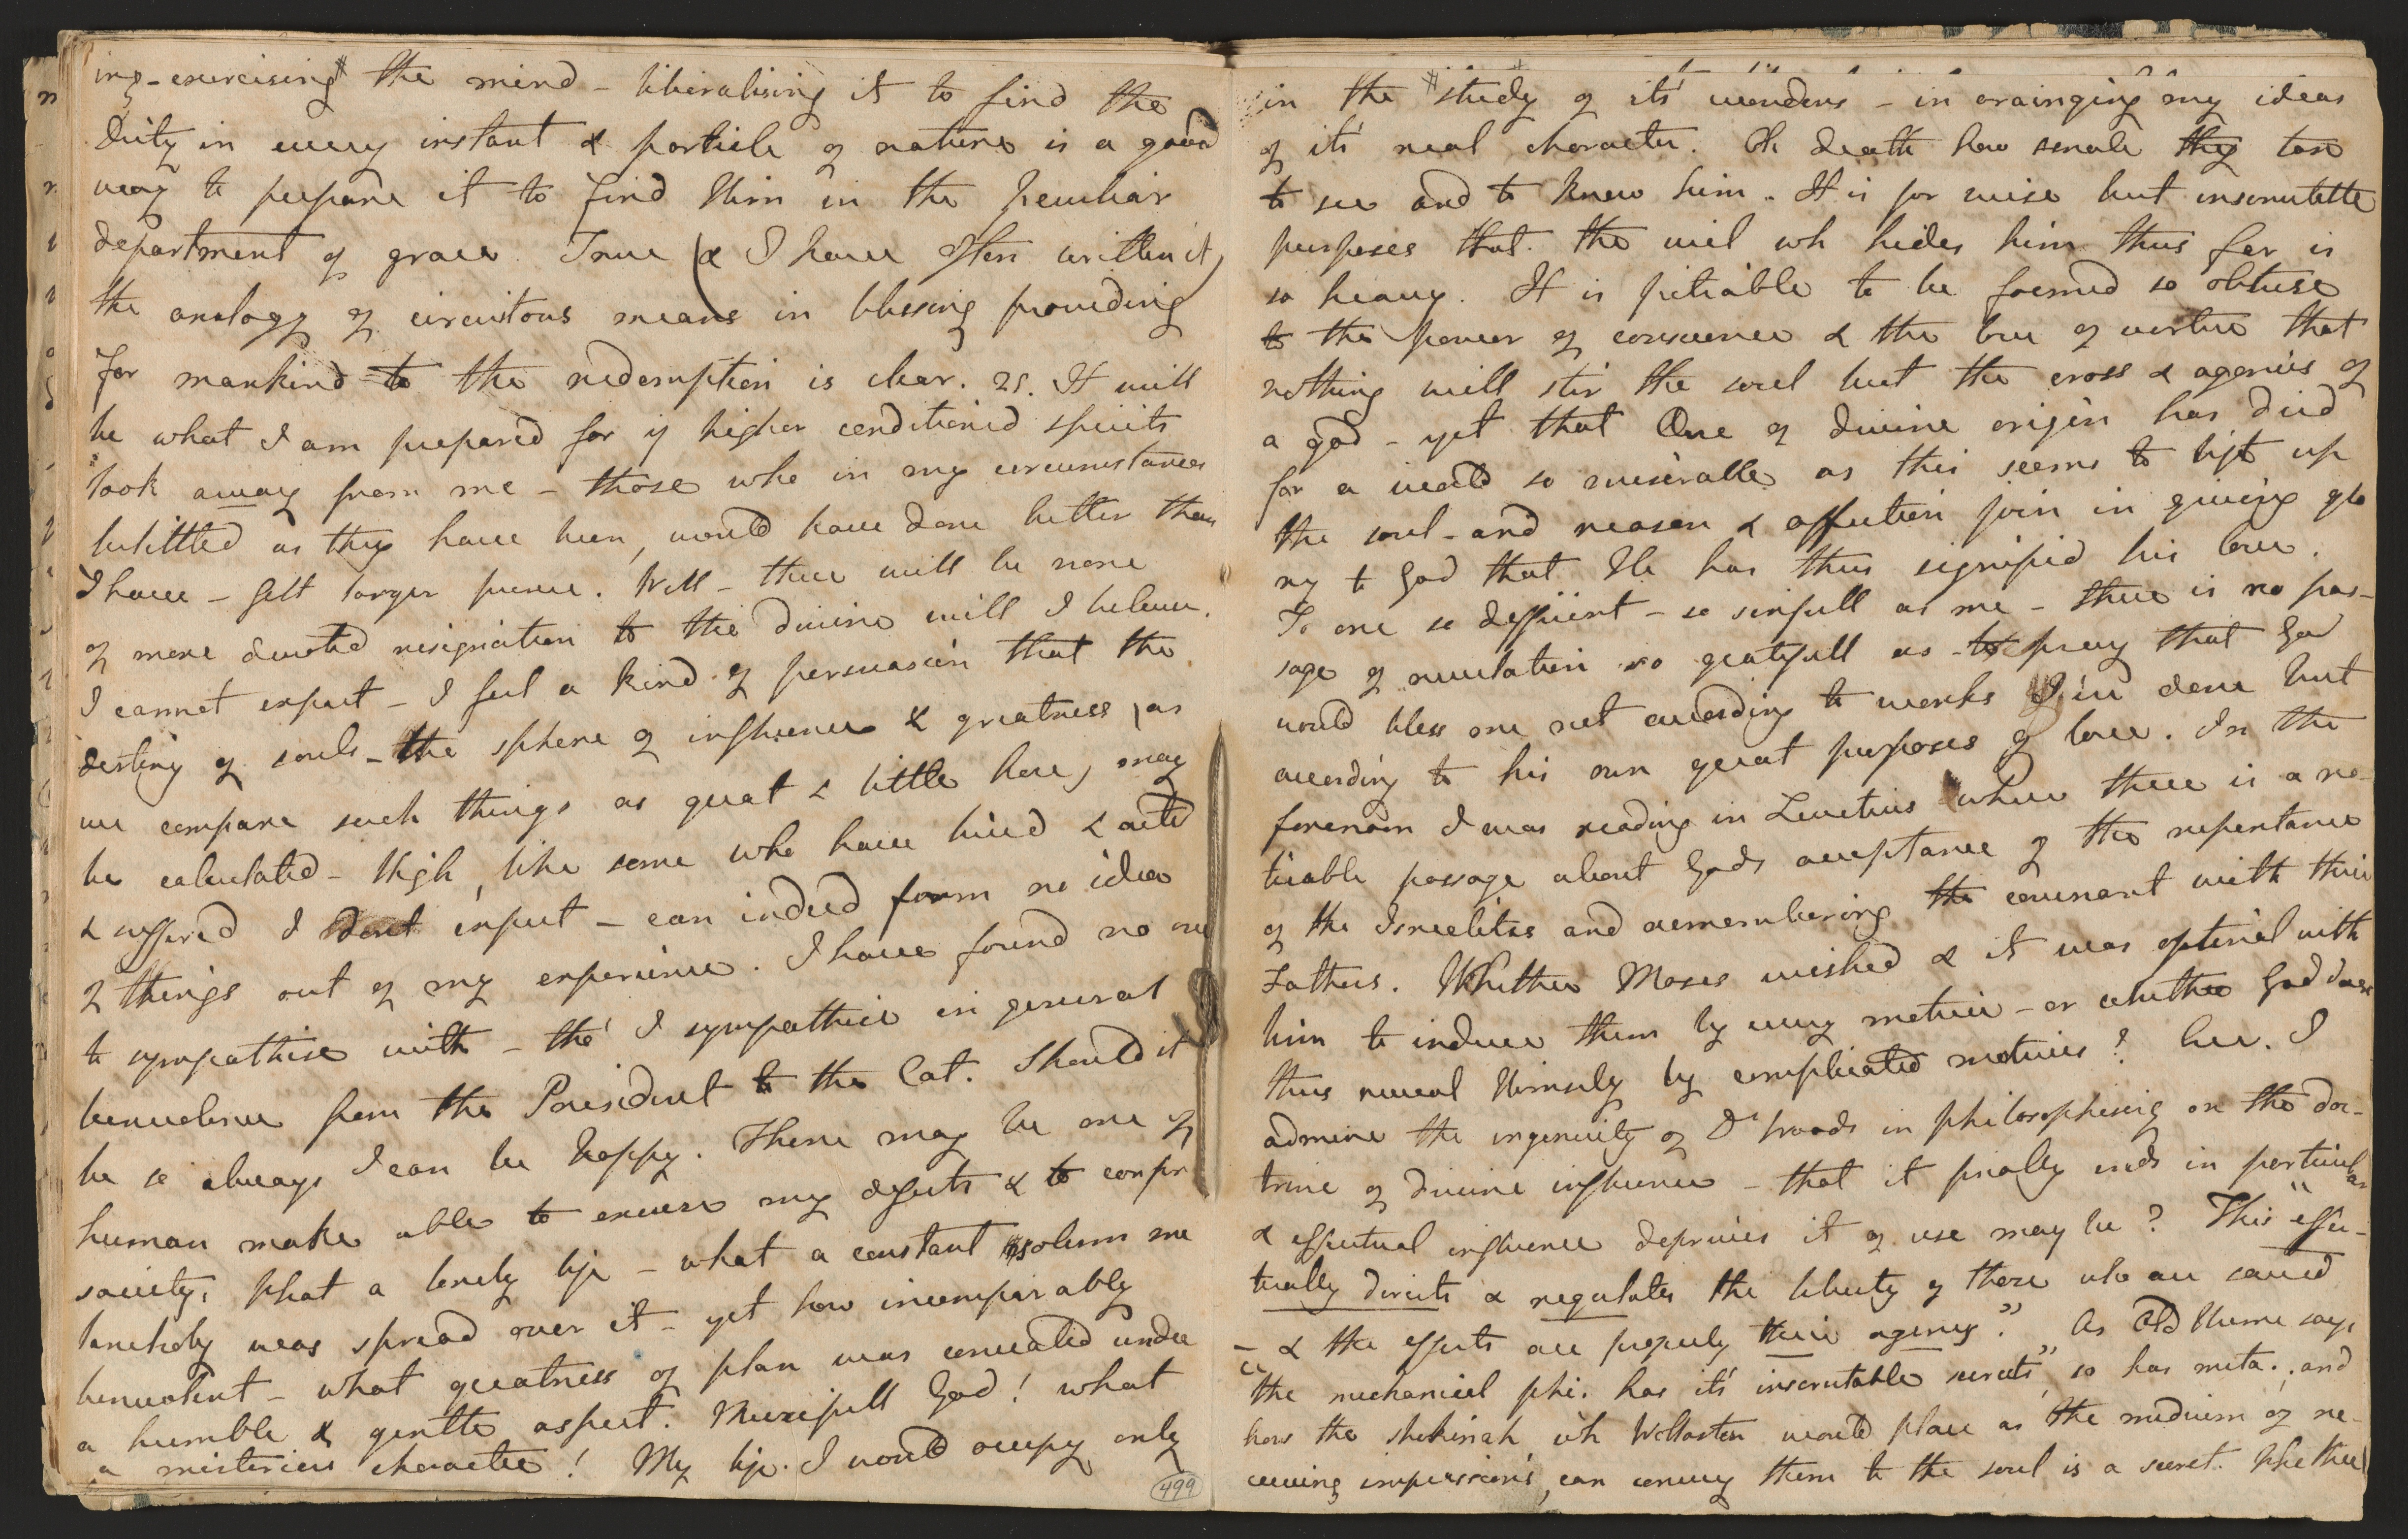 ing - exercising # the mind - liberalising it to find the
Deity in every instant & particle of nature is a good
way to prepare it to find Him in the peculiar
department of grace. True (& I have often written it)
the analogy of circuitous means in blessing providing
for mankind to the redemption is clear. 25. It will
be what I am prepared for if higher conditioned spirits
look away from me - those who in my circumstances
belittled as they have been, would have done better than
I have - felt larger Well - there will be none
of more devoted resignation to the divine will I believe.
I cannot expect - I feel a kind of persuasion that the
destiny of souls - the sphere of influence & greatness, (as
we compare such things as great & little here) may
be calculated - High, like some who have lived & acted
& suffered I dont expect - can indeed form no idea
of things out of my experience. I have found no one
to sympathise with - tho' I sympathise in general
benevolence from the President to the Cat. Should it
be so always I can be happy. There may be one of
human make able to excuse my defects & to confer
society. What a lonely life - what a constant & solemn me
lancholy was spread over it - yet how incomparably
benevolent - what greatness of plan was concealed under
a humble & gentle aspect. Mercifull God! what
a misterious character! My life. I would occupy only
499
in the # study of its' wonders - in arainging my ideas
of its' real character. Oh death how small thy tax
to see and to know him. It is for wise but inscrutable
purposes that the viel wh hides him thus far is
so heavy. It is pitiable to be formed so obtuse
to the power of conscience & the love of virtue that
nothing will stir the soul but the cross & agonies of
a god - yet that One of divine origin has died
for a world so miserable as this seems to lift up
the soul - and reason & affection join in giving glo
ry to God that He has thus signified his love.
To one so defficient - so sinfull as me - there is no pas-
sage of revelation so gratefull as to pray that God
would bless me not according to works I've done but
according to his own great purposes of love. In the
forenoon I was reading in Leveticus where there is a no-
ticable passage about Gods acceptance of the repentance
of the Israelites and remembering the covenant with their
Fathers. Whether Moses wished & it was optional with
him to induce them by every motive - or whether God does
thus reveal Himself by complicated motives? her. I
admire the ingenuity of Dr Woods in philosophising on the doc-
trine of divine influence - that it finally ends in particular
& effectual influence deprives it of use may be? This "effec-
tually directs & regulates the liberty of those who are saved
- & the effects are properly their agency." As Old Hume says
"the mechanical phi. has its' inscrutable secrets", so has meta., and
how the shekinah, wh Wollaston would place as the medium of re-
ceiving impressions, can convey them to the soul is a secret. Whether